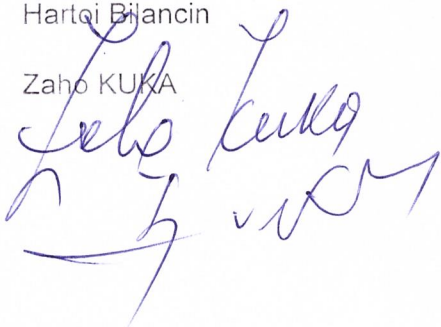 Hartoi Bilancin
Zaho KUKA
Zaho Kuka